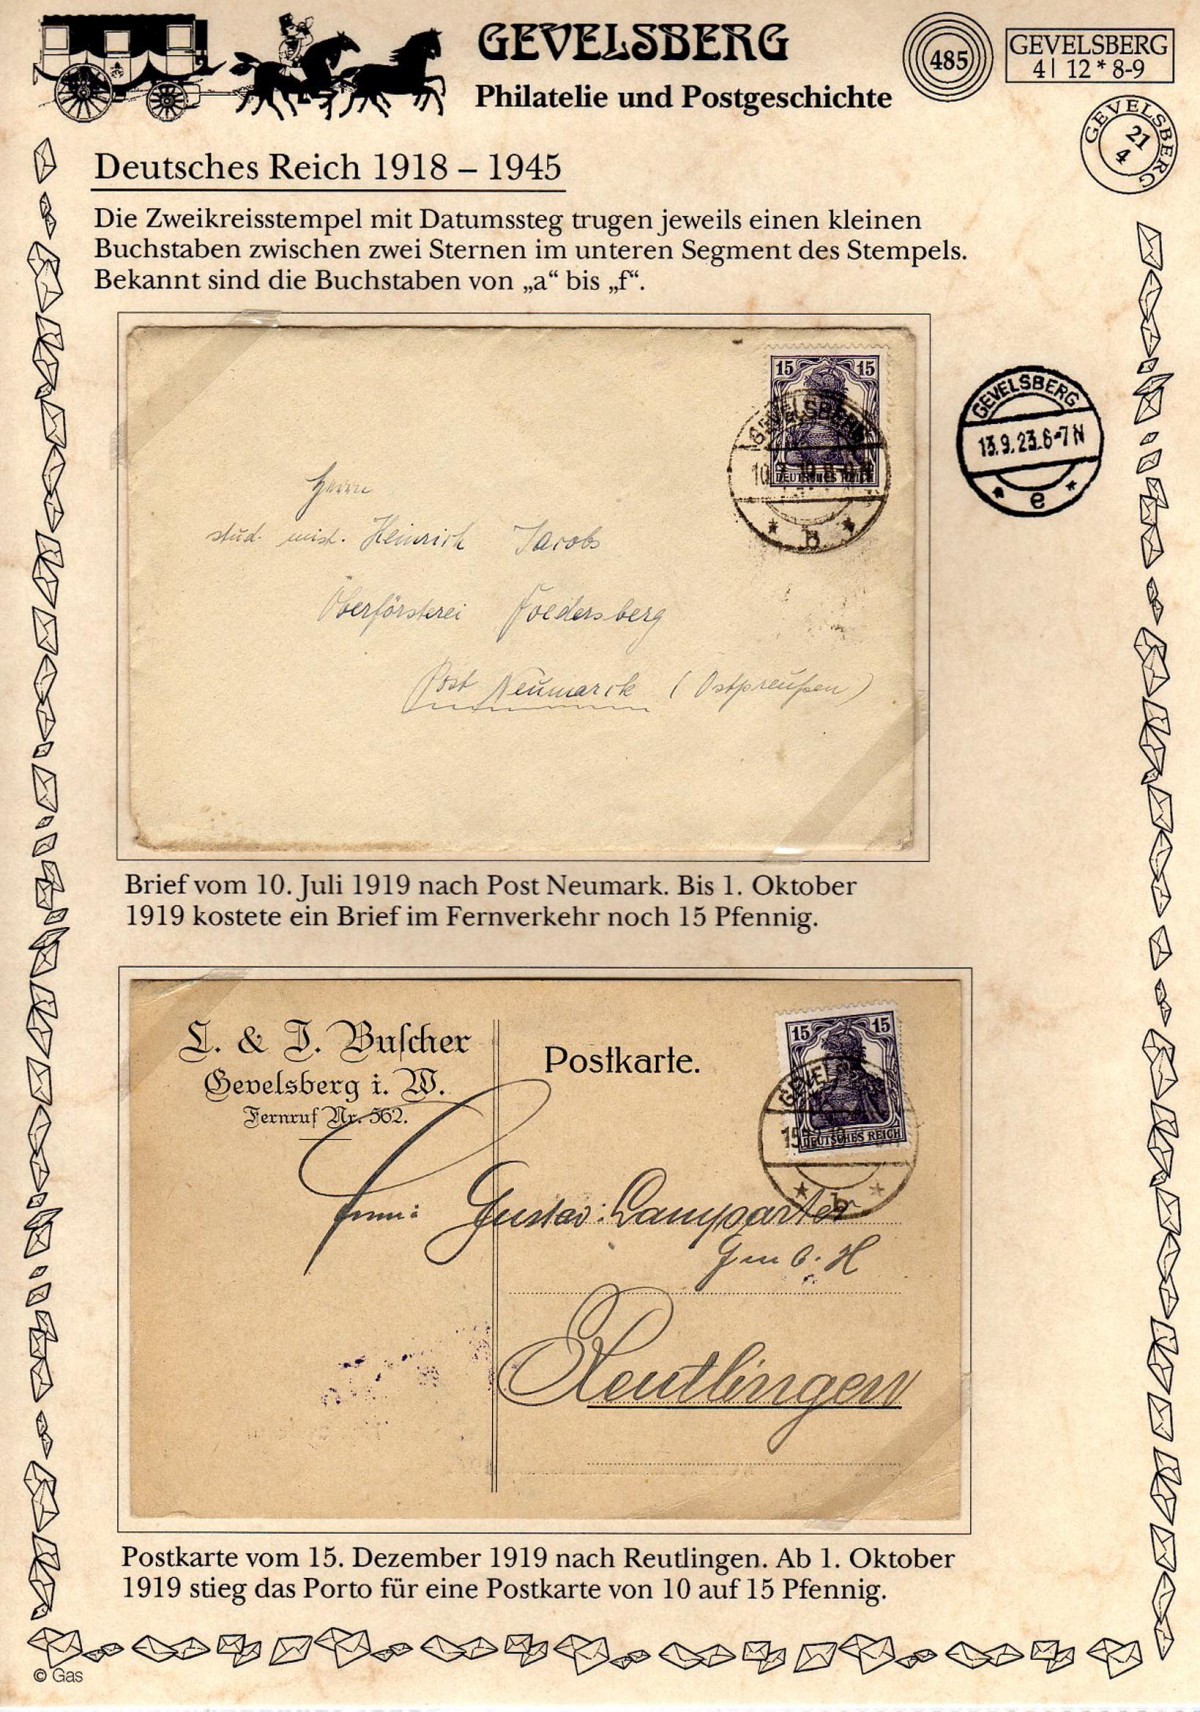 GEVELSBERG
Philatelie und Postgeschichte
485
GEVELSBERG
4| 12 * 8-9
GEVELSBERG
21
4
Deutsches Reich 1918 – 1945
Die Zweikreisstempel mit Datumssteg trugen jeweils einen kleinen
Buchstaben zwischen zwei Sternen im unteren Segment des Stempels.
Bekannt sind die Buchstaben von „a“ bis „f“.
15 15
DEUTSCHES REICH
GEVELSBERG
* b *
GEVELSBERG
13.9.23.6-7N
* e *
Herrn
stud. Heinrich Jacobs
Oberförsterei
Post Neumarck (Ostpreußen)
Brief vom 10. Juli 1919 nach Post Neumark. Bis 1. Oktober
1919 kostete ein Brief im Fernverkehr noch 15 Pfennig.
L. & J. Buscher
Gevelsberg i. W.
Fernruf Nr. 562.
Postkarte.
15 15
DEUTSCHES REICH
* b *
Firma Gustav
G m b. H
Reutlingen
Postkarte vom 15. Dezember 1919 nach Reutlingen. Ab 1. Oktober
1919 stieg das Porto für eine Postkarte von 10 auf 15 Pfennig.
© Gas